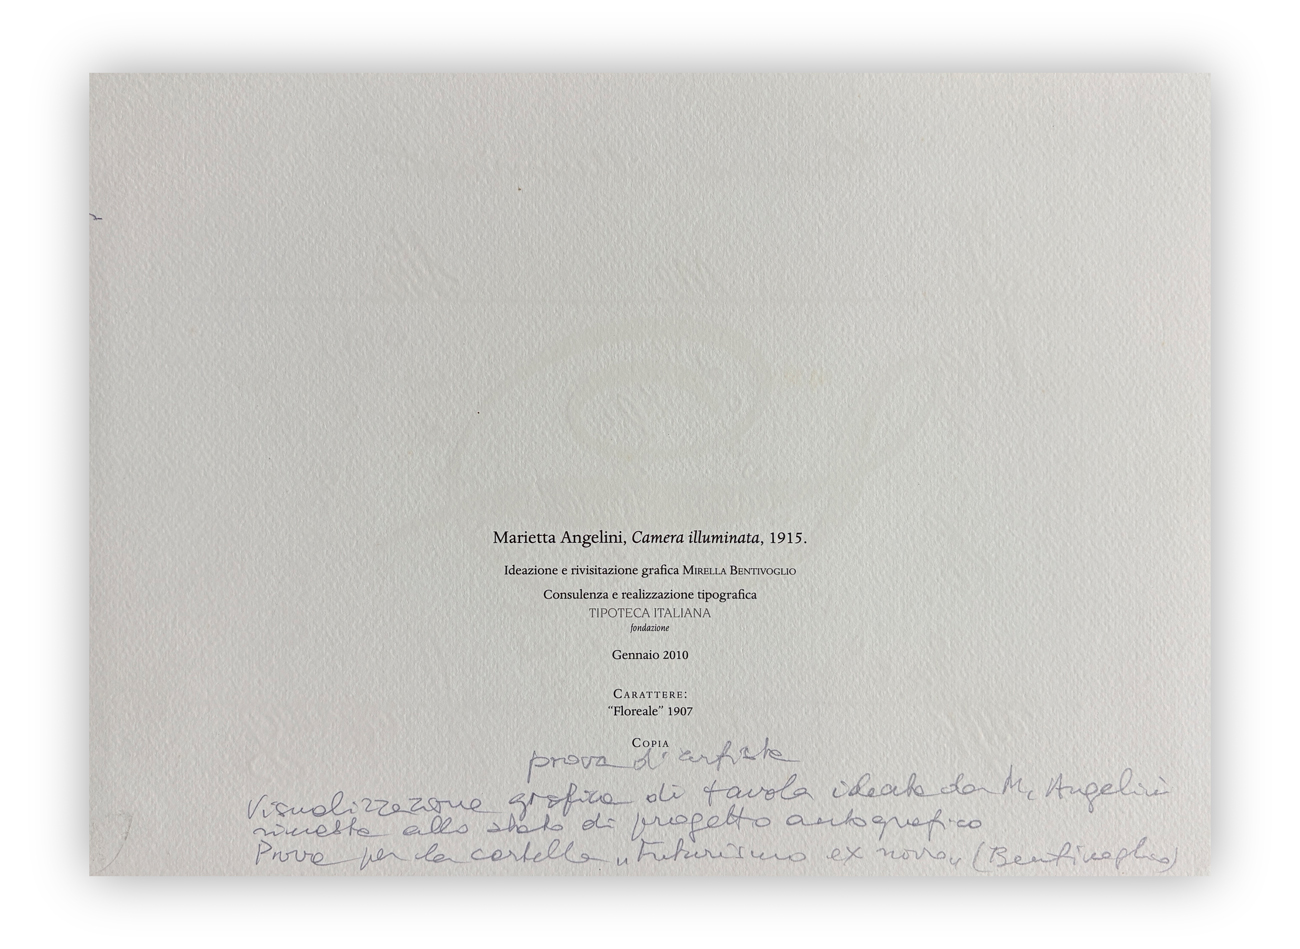 Marietta Angelini, Camera illuminata, 1915.
Ideazione e rivisitazione grafica Mirella Bentivoglio
Consulenza e realizzazione tipografica
TIPOTECA ITALIANA
fondazione
Gennaio 2010
Carattere:
“Floreale” 1907
Copia
prova d'artista
Visualizzazione grafica di tavola ideata da M. Angelini
rimasta allo stato di progetto autografico
Prova per la cartella „Futurismo ex novo„ (Bentivoglio)